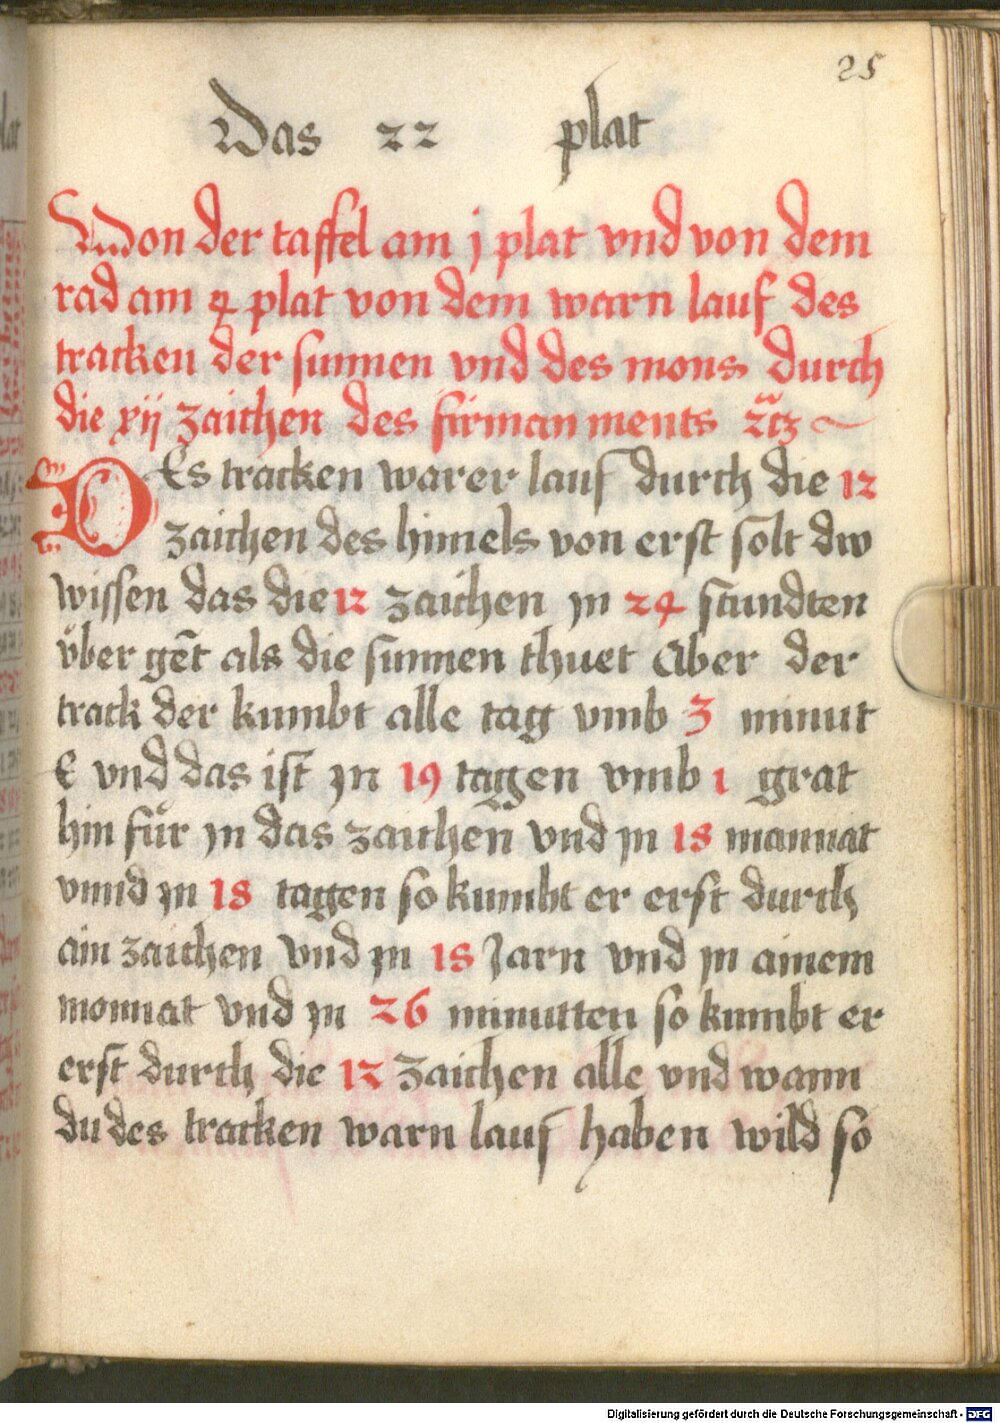 25
Das 22 plat
Von der taffel am j plat vnd von dem
rad am 4 plat von dem warn lauf des
tracken der sunnen vnd des mons durch
die xij zaichen des firmanments
DEs tracken warer lauf durch die 12
zaichen des himels von erst solt dw
wissen das die 12 zaichen jn 24 stundten
vber gēt als die sunnen thuet Aber der
track der kumbt alle tag vmb 3 minut
e vnd das ist jn 19 tagen vmb 1 grat
hin für jn das zaichen vnd jn 18 mannat
vnnd jn 18 tagen so kumbt er erst durch
ain zaichen vnd jn 18 Jarn vnd jn ainem
monnat vnd jn 26 minutten so kumbt er
erst durch die 12 zaichen alle vnd wann
du des tracken warn lauf haben wild so
Digitalisierung gefördert durch die Deutsche Forschungsgemeinschaft - DFG